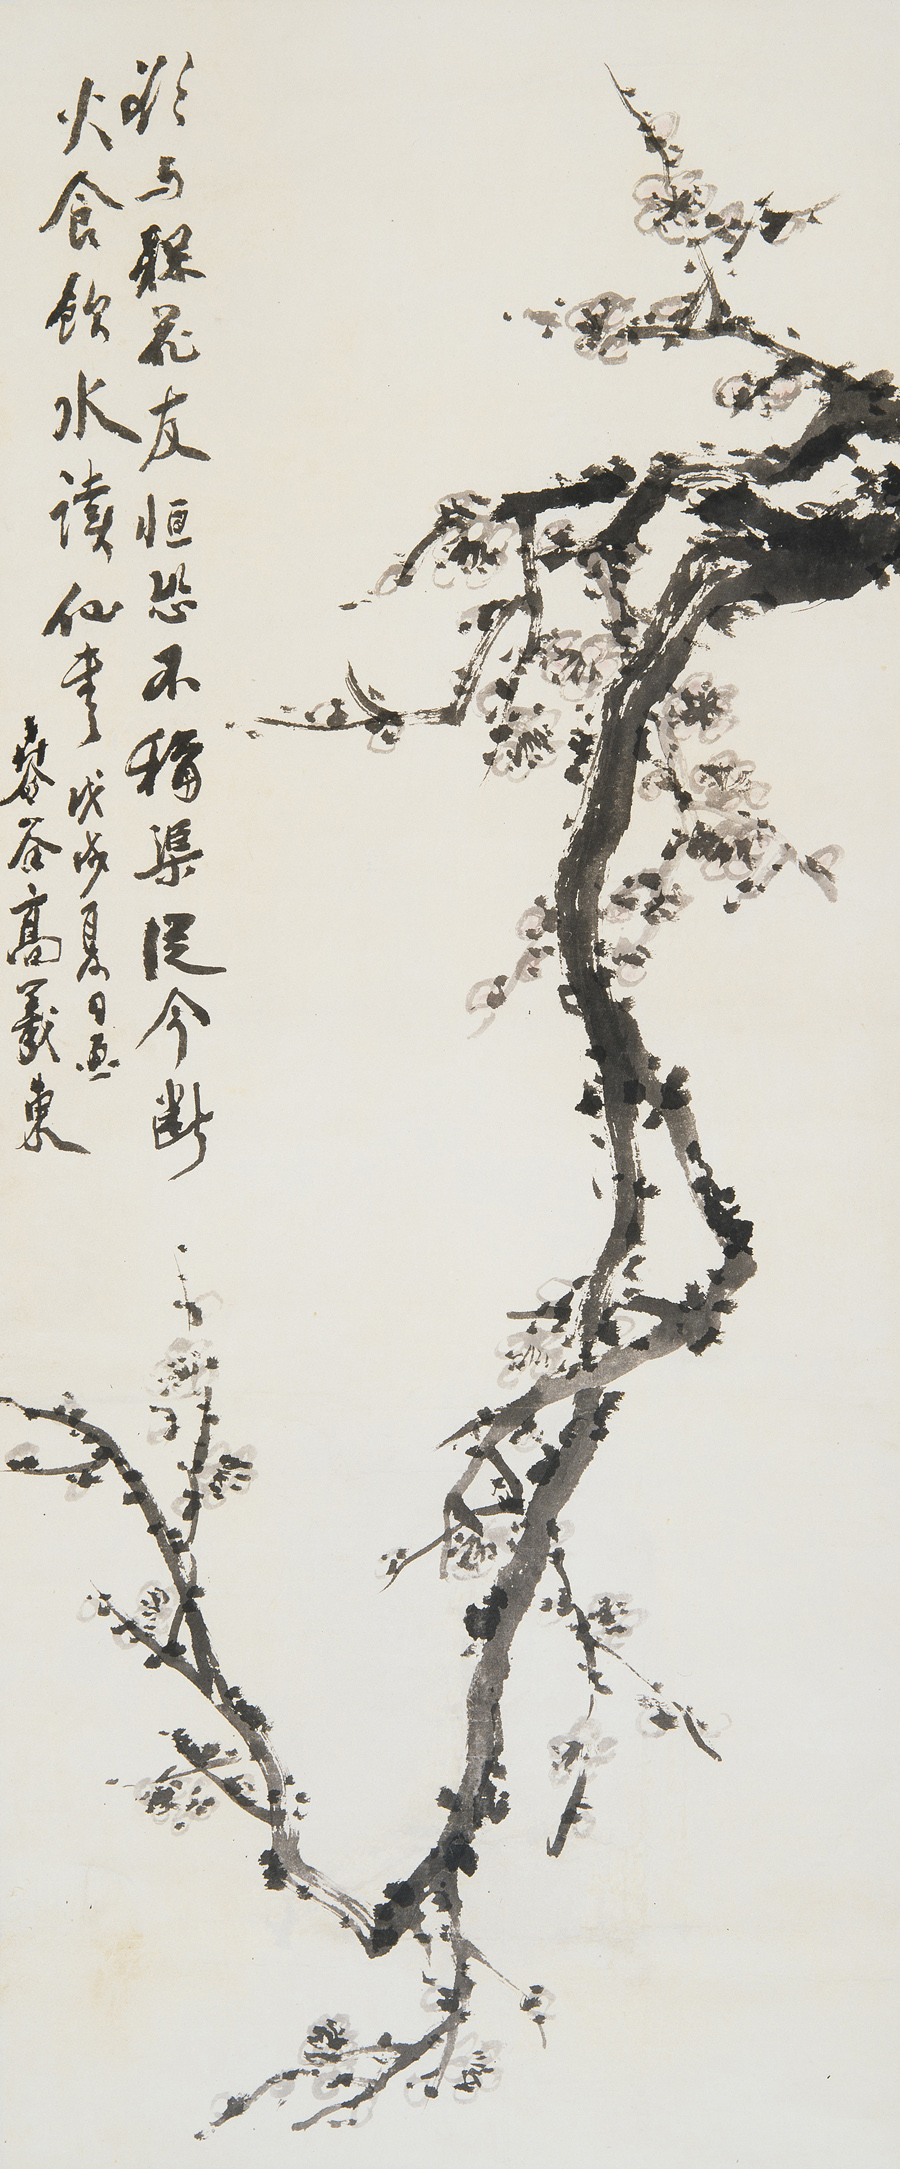 欲与槑花友恒恐不稱渠從今断
火食飲水讀仙書
戊戌夏日画
春谷高羲東